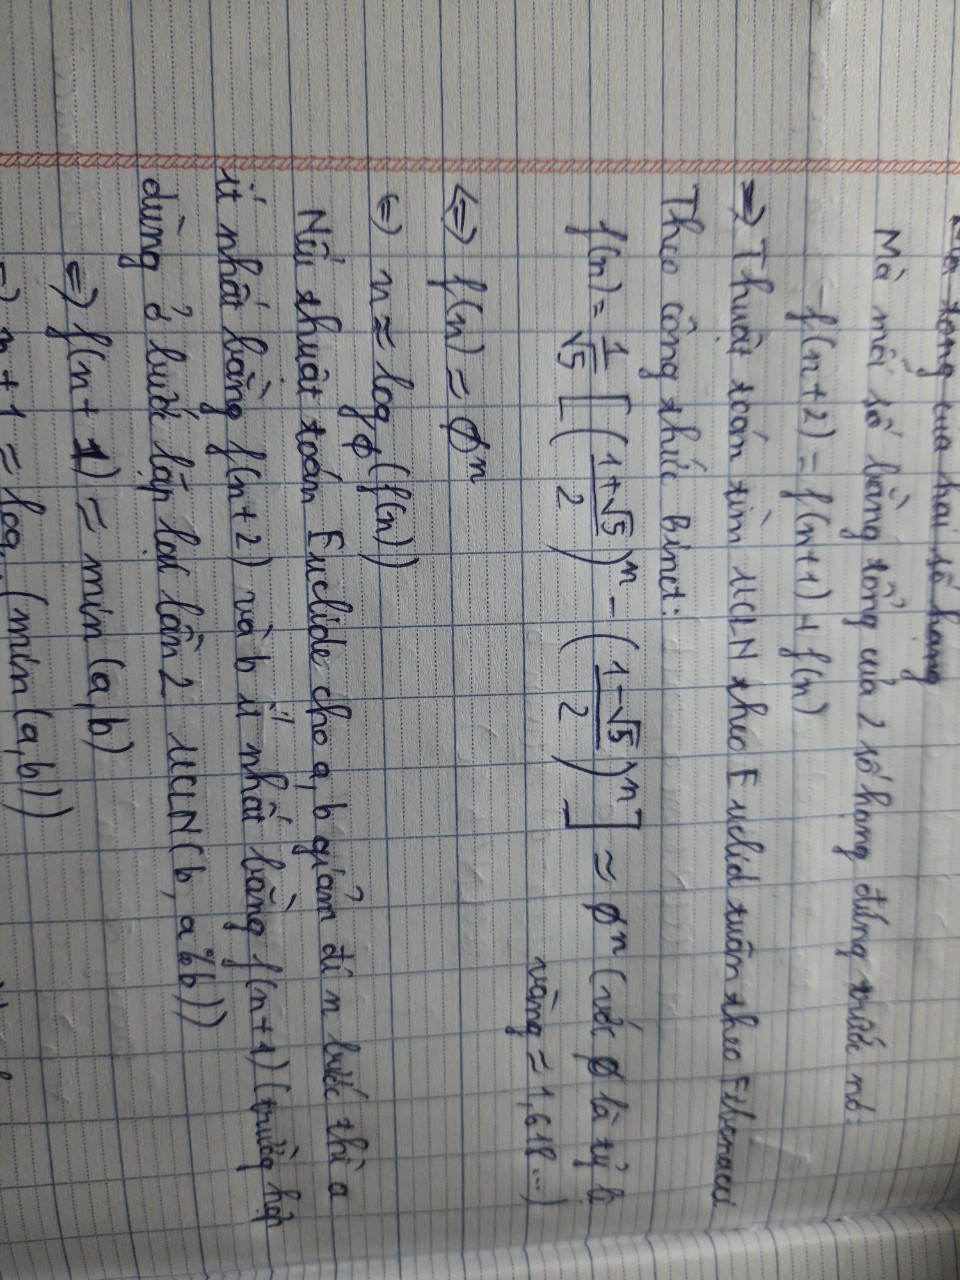 tổng của hai số hạng
Mà mỗi số bằng tổng của 2 số hạng đứng trước nó:
f(n+2) = f(n+1) + f(n)
=> Thuật toán tìm UCLN theo Euclid tuân theo Fibonacci
Theo công thức Binet:
f(n) = 1/√5 [((1+√5)/2)^n - ((1-√5)/2)^n] ≈ ø^n (với ø là tỷ lệ
vàng ≈ 1,618...)
<=> f(n) ≈ ø^n
<=> n ≈ log_ø(f(n))
Nếu thuật toán Euclide cho a, b giảm đi n bước thì a
ít nhất bằng f(n+2) và b ít nhất bằng f(n+1) (trường hợp
dừng ở bước lặp lại lần 2 UCLN(b, a%b))
=> f(n+1) ≈ min(a,b)
=> n+1 = log (min(a,b))